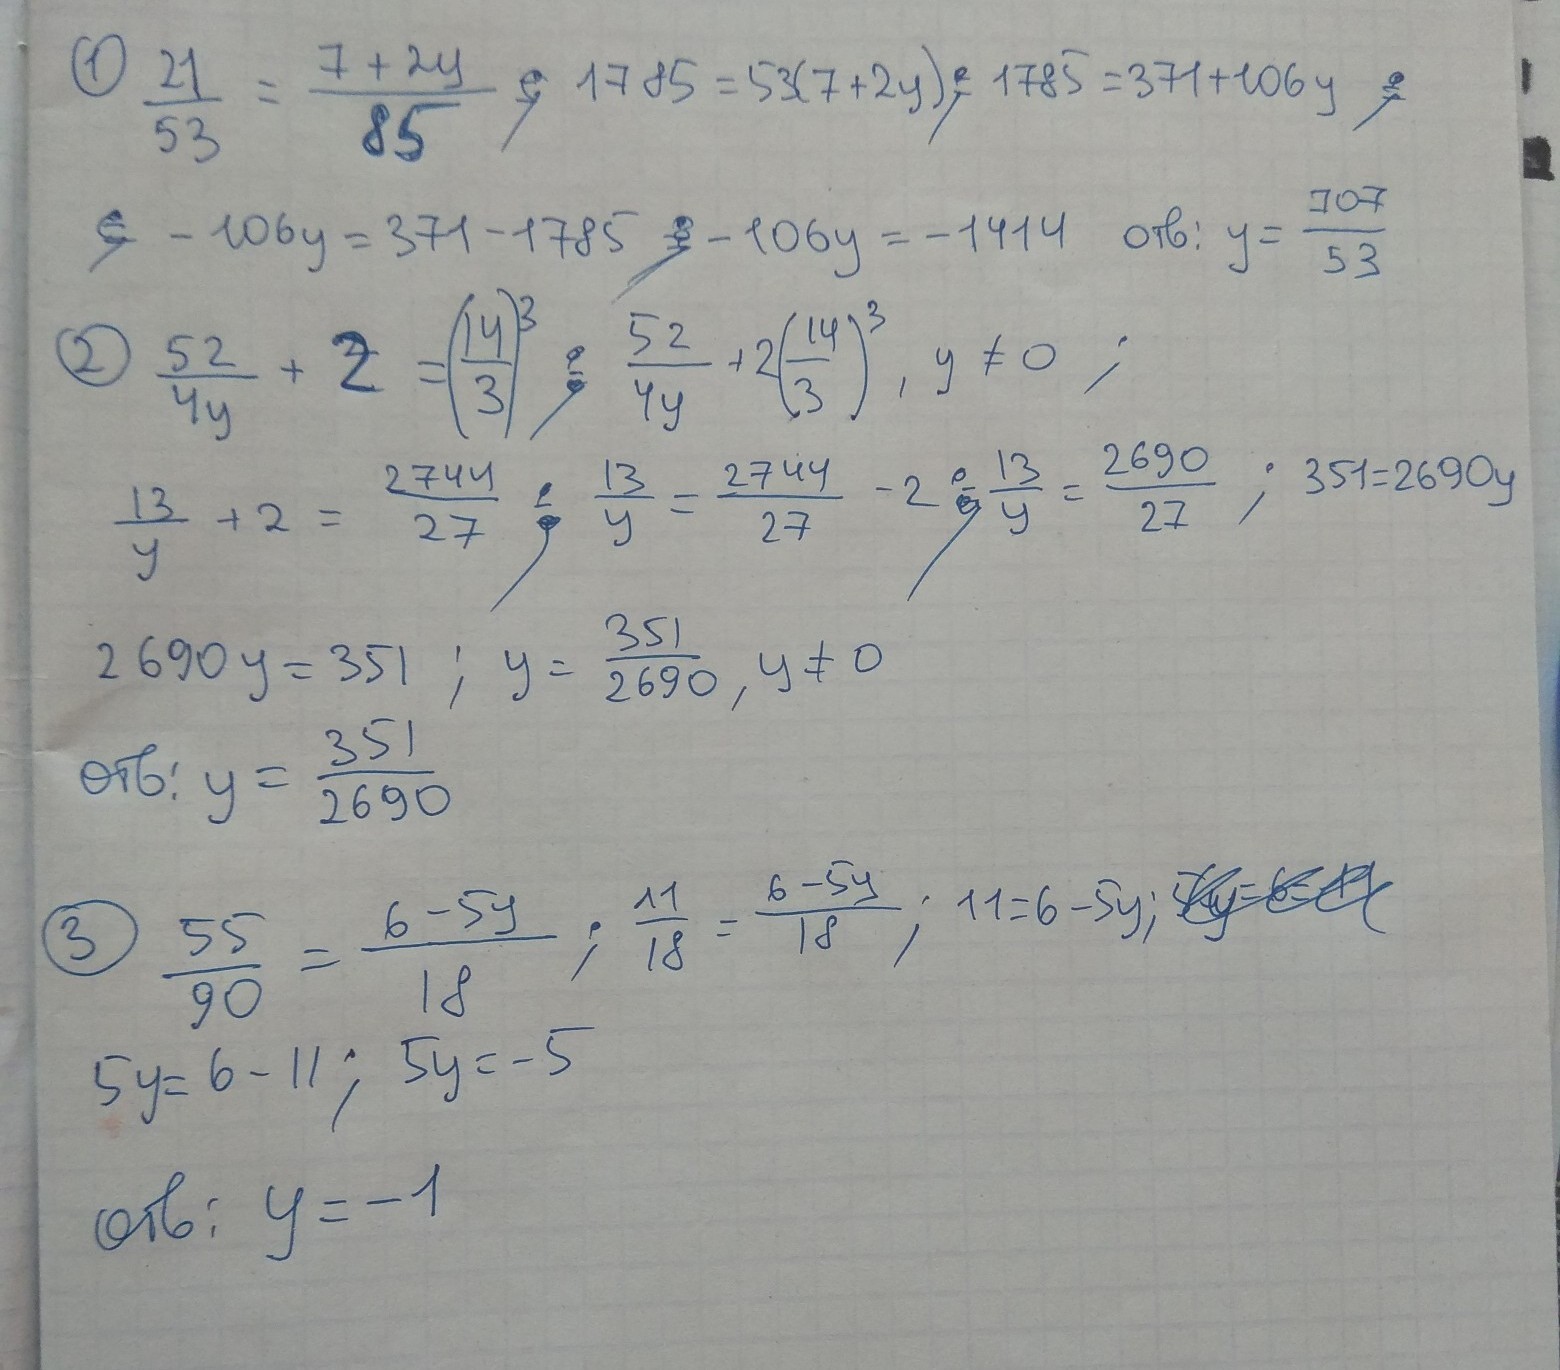 ① 21/53 = (7+2y)/85 ; 1785 = 53(7+2y) ; 1785 = 371+106y ;
; -106y = 371-1785 ; -106y = -1414 отв: y = 707/53
② 52/4y + 2 = (14/3)³ ; 52/4y + 2(14/3)³, y ≠ 0 ;
13/y + 2 = 2744/27 ; 13/y = 2744/27 - 2 ; 13/y = 2690/27 ; 351=2690y
2690y = 351 ; y = 351/2690, y ≠ 0
отв: y = 351/2690
③ 55/90 = (6-5y)/18 ; 11/18 = (6-5y)/18 ; 11=6-5y;
5y=6-11; 5y=-5
отв: y = -1